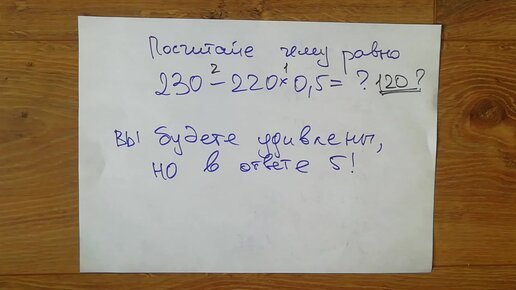 Посчитайте чему равно
230 - 220 × 0,5 = ? 120?
2 1
вы будете удивлены,
но в ответе 5!